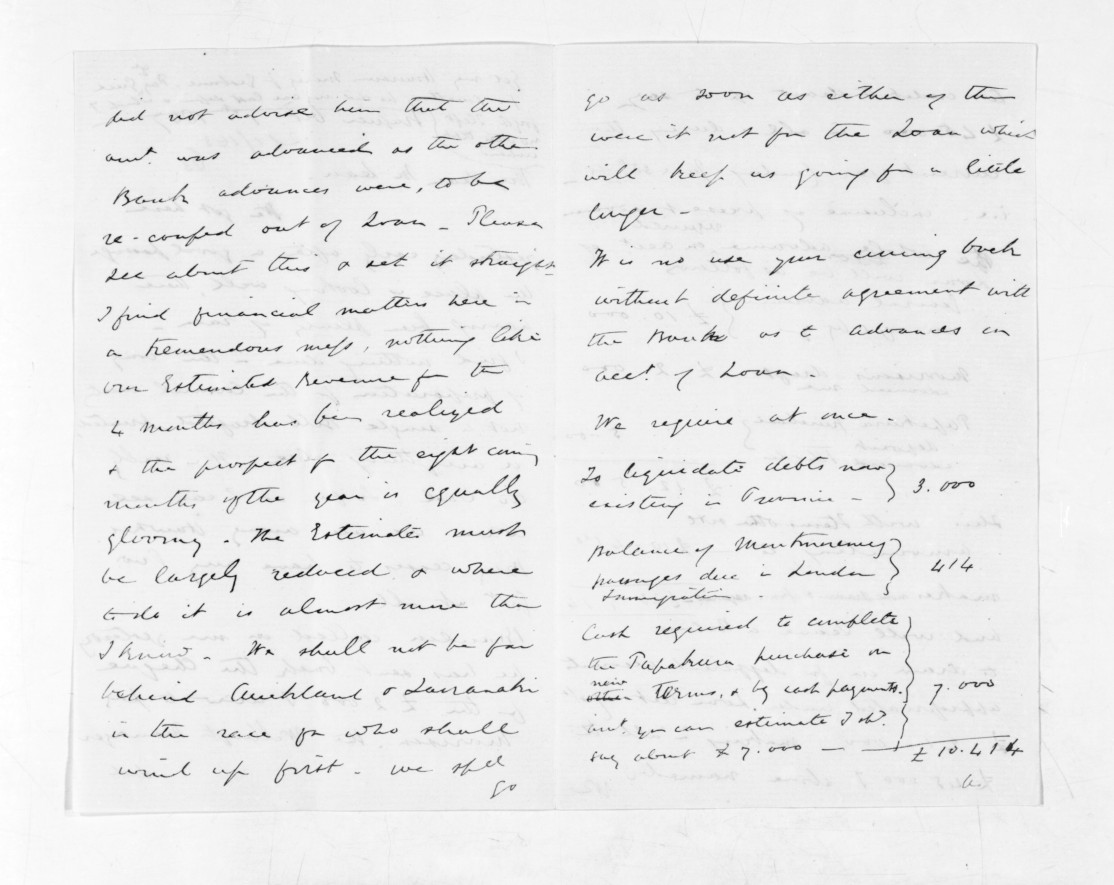 did not advise him that this
amt. was advanced as the other
Bank advances were, to be
re-couped out of Loan - Please
see about this & set it straight
I find financial matters here in
a tremendous mess, nothing like
our Estimated Revenue for the
4 months has been realized
& the prospect for the eight coming
months of the year is equally
gloomy. The Estimates must
be largely reduced & where
to do it is almost more than
I know. We shall not be far
behind Auckland & Taranaki
in the race for who shall
wind up first. We shd
go
go as soon as either of them
were it not for the Loan which
will keep us going for a little
longer -
It is no use your coming back
without definite agreement with
the Bank as to advances on
acct. of Loan -
We require at once -
To liquidate debts now
existing in Province - } 3.000
Balance of Montmorency
passages due in London } 414
Immigration -
Cash required to complete
the Papakura purchase on
new
other terms, & by cash payments. } 7.000
amt. you can estimate I shd.
say about £7.000 —
£10.414
as